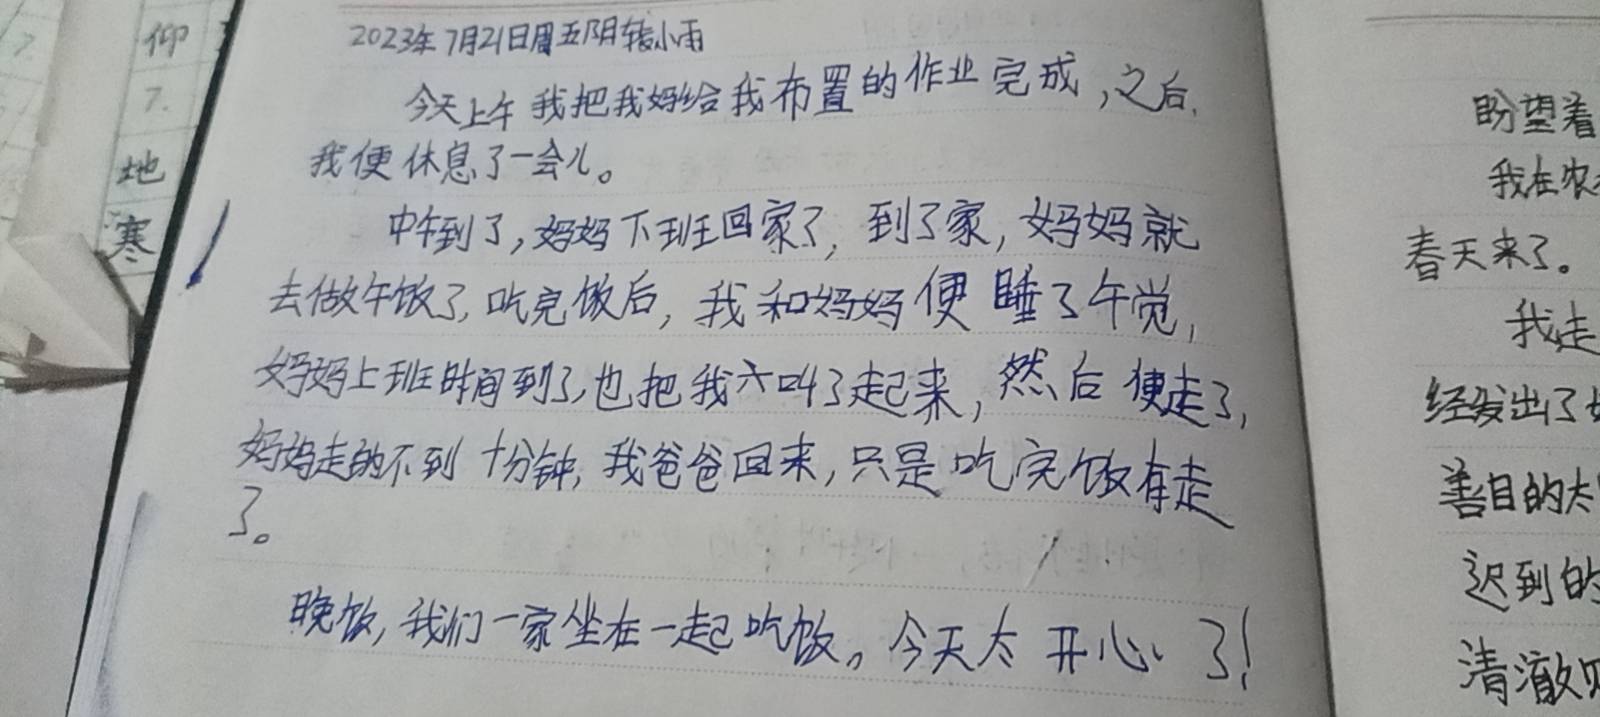 仰
7.
地
寒
2023年7月21日周五阴转小雨
今天上午我把我妈给我布置的作业完成,之后,
我便休息了一会儿。
中午到了,妈妈下班回家了,到了家,妈妈就
去做午饭了,吃完饭后,我和妈妈便睡了午觉,
妈妈上班时间到了,也把我六叫了起来,然后便走了,
妈妈走的不到十分钟,我爸爸回来,只是吃完饭有走
了。
晚饭,我们一家坐在一起吃饭。今天太开心了!
盼望着
我在农
春天来了。
我走
经发出了
善目的太
迟到的
清澈见